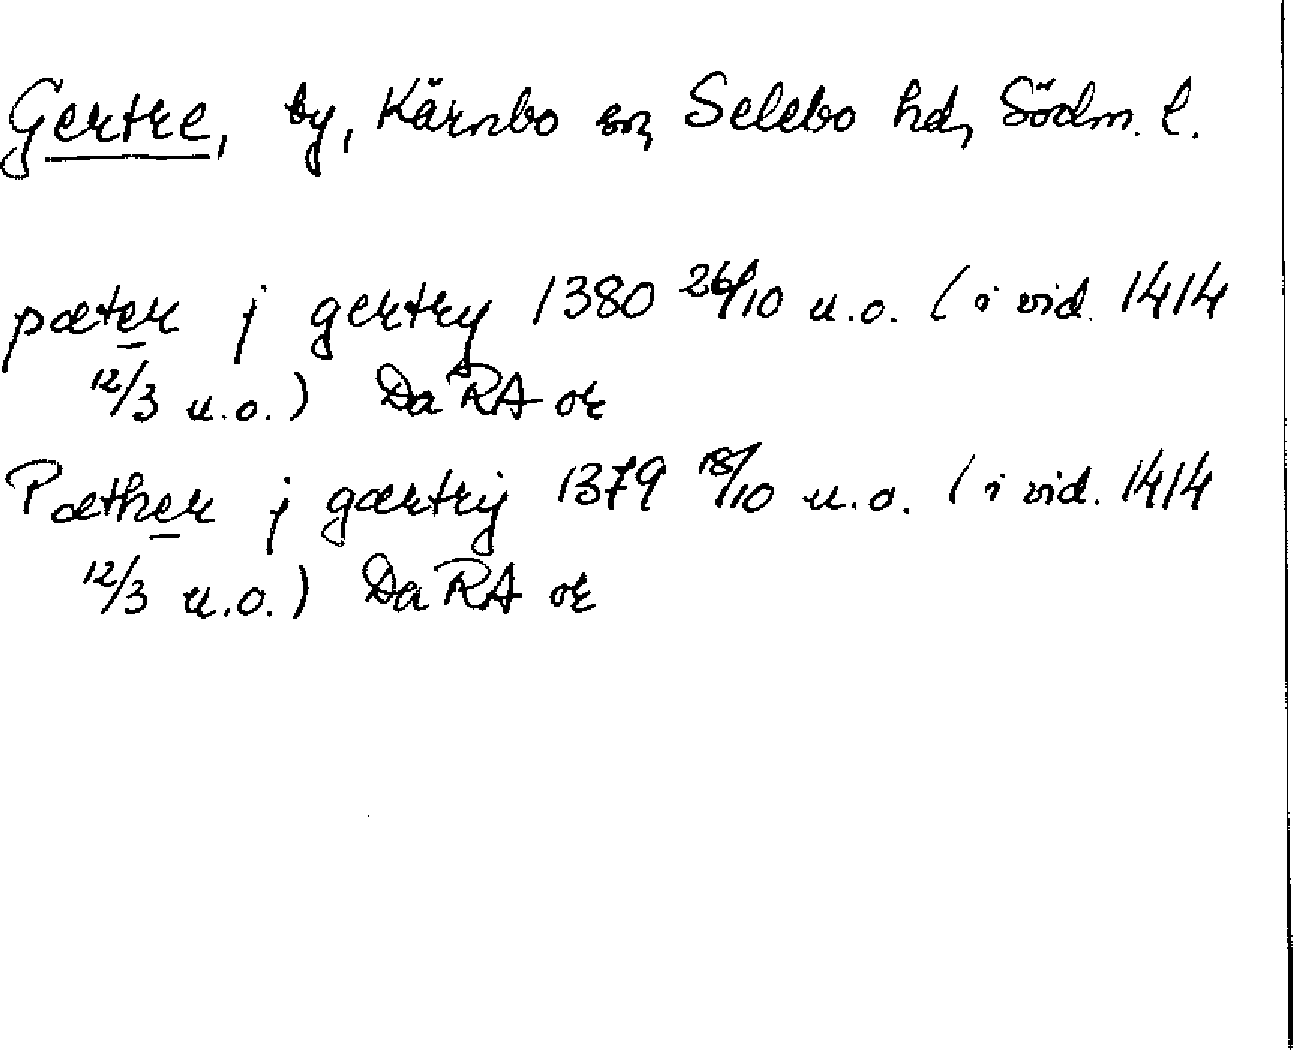 Gertre, by, Kärnbo sn, Selebo hd, Södm. l.
pæter j gertry 1380 26/10 u.o. (i vid. 1414
12/3 u.o.) Da RA or
Pæther j gærtrij 1379 18/10 u.o. (i vid. 1414
12/3 u.o.) Da RA or